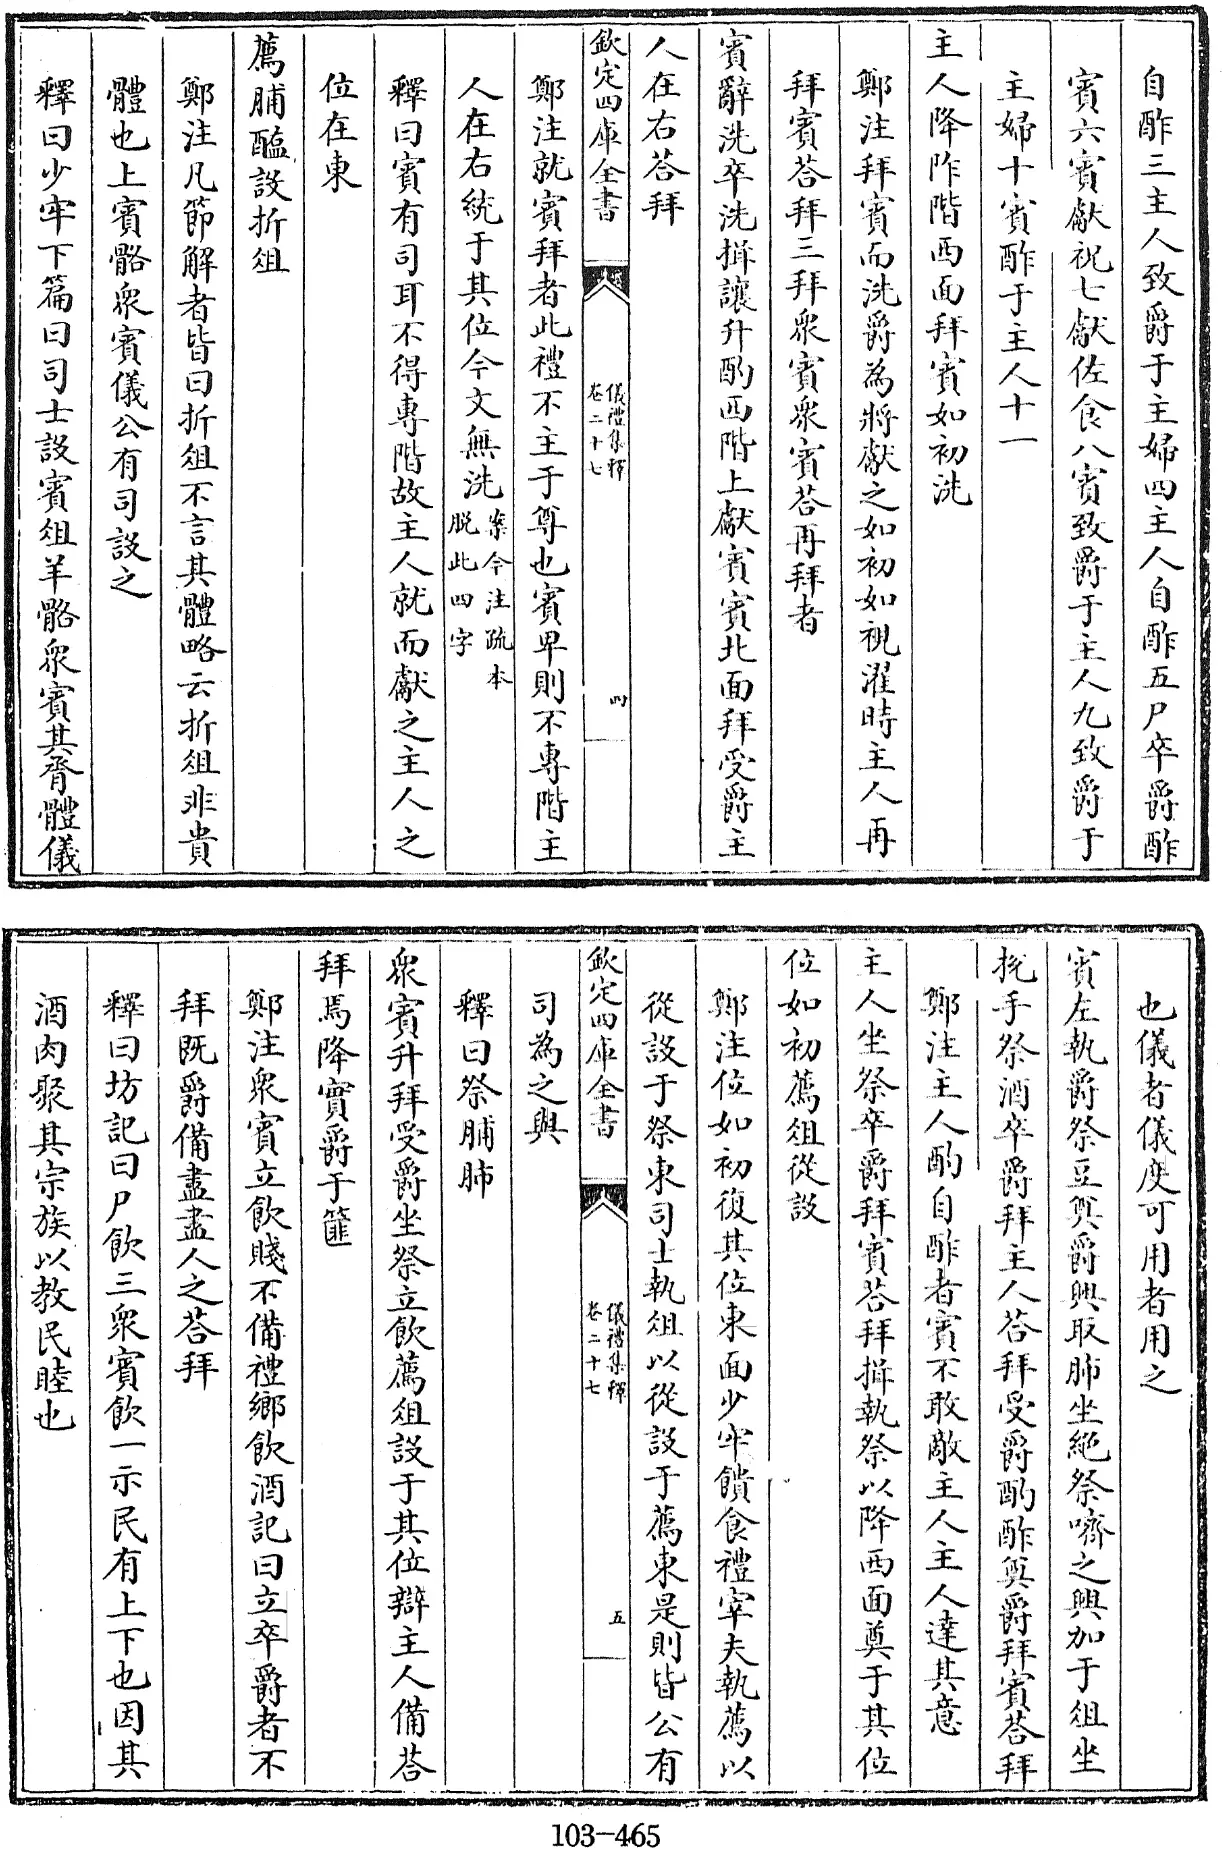 自酢三主人致爵于主婦四主人自酢五尸卒爵酢
賓六賓獻祝七獻佐食八賓致爵于主人九致爵于
主婦十賓酢于主人十一
主人降阼階西面拜賓如初洗
鄭注拜賓而洗爵為將獻之如初如視濯時主人再
拜賓荅拜三拜衆賓衆賓荅再拜者
賓辭洗卒洗揖讓升酌西階上獻賓賓北面拜受爵主
人在右荅拜
欽定四庫全書
儀禮集釋
卷二十七
四
鄭注就賓拜者此禮不主于尊也賓卑則不專階主
人在右統于其位今文無洗案今注疏本
脱此四字
釋曰賓有司耳不得專階故主人就而獻之主人之
位在東
薦脯醢設折俎
鄭注凡節解者皆曰折俎不言其體略云折俎非貴
體也上賓骼衆賓儀公有司設之
釋曰少牢下篇曰司士設賓俎羊骼衆賓其脀體儀
也儀者儀度可用者用之
賓左執爵祭豆奠爵興取肺坐絶祭嚌之興加于俎坐
挩手祭酒卒爵拜主人荅拜受爵酌酢奠爵拜賓荅拜
鄭注主人酌自酢者賓不敢敵主人主人達其意
主人坐祭卒爵拜賓荅拜揖執祭以降西面奠于其位
位如初薦俎從設
鄭注位如初復其位東面少牢饋食禮宰夫執薦以
從設于祭東司士執俎以從設于薦東是則皆公有
欽定四庫全書
儀禮集釋
卷二十七
五
司為之與
釋曰祭脯肺
衆賓升拜受爵坐祭立飲薦俎設于其位辯主人備荅
拜焉降實爵于篚
鄭注衆賓立飲賤不備禮鄉飲酒記曰立卒爵者不
拜既爵備盡盡人之荅拜
釋曰坊記曰尸飲三衆賓飲一示民有上下也因其
酒肉聚其宗族以教民睦也
103-465